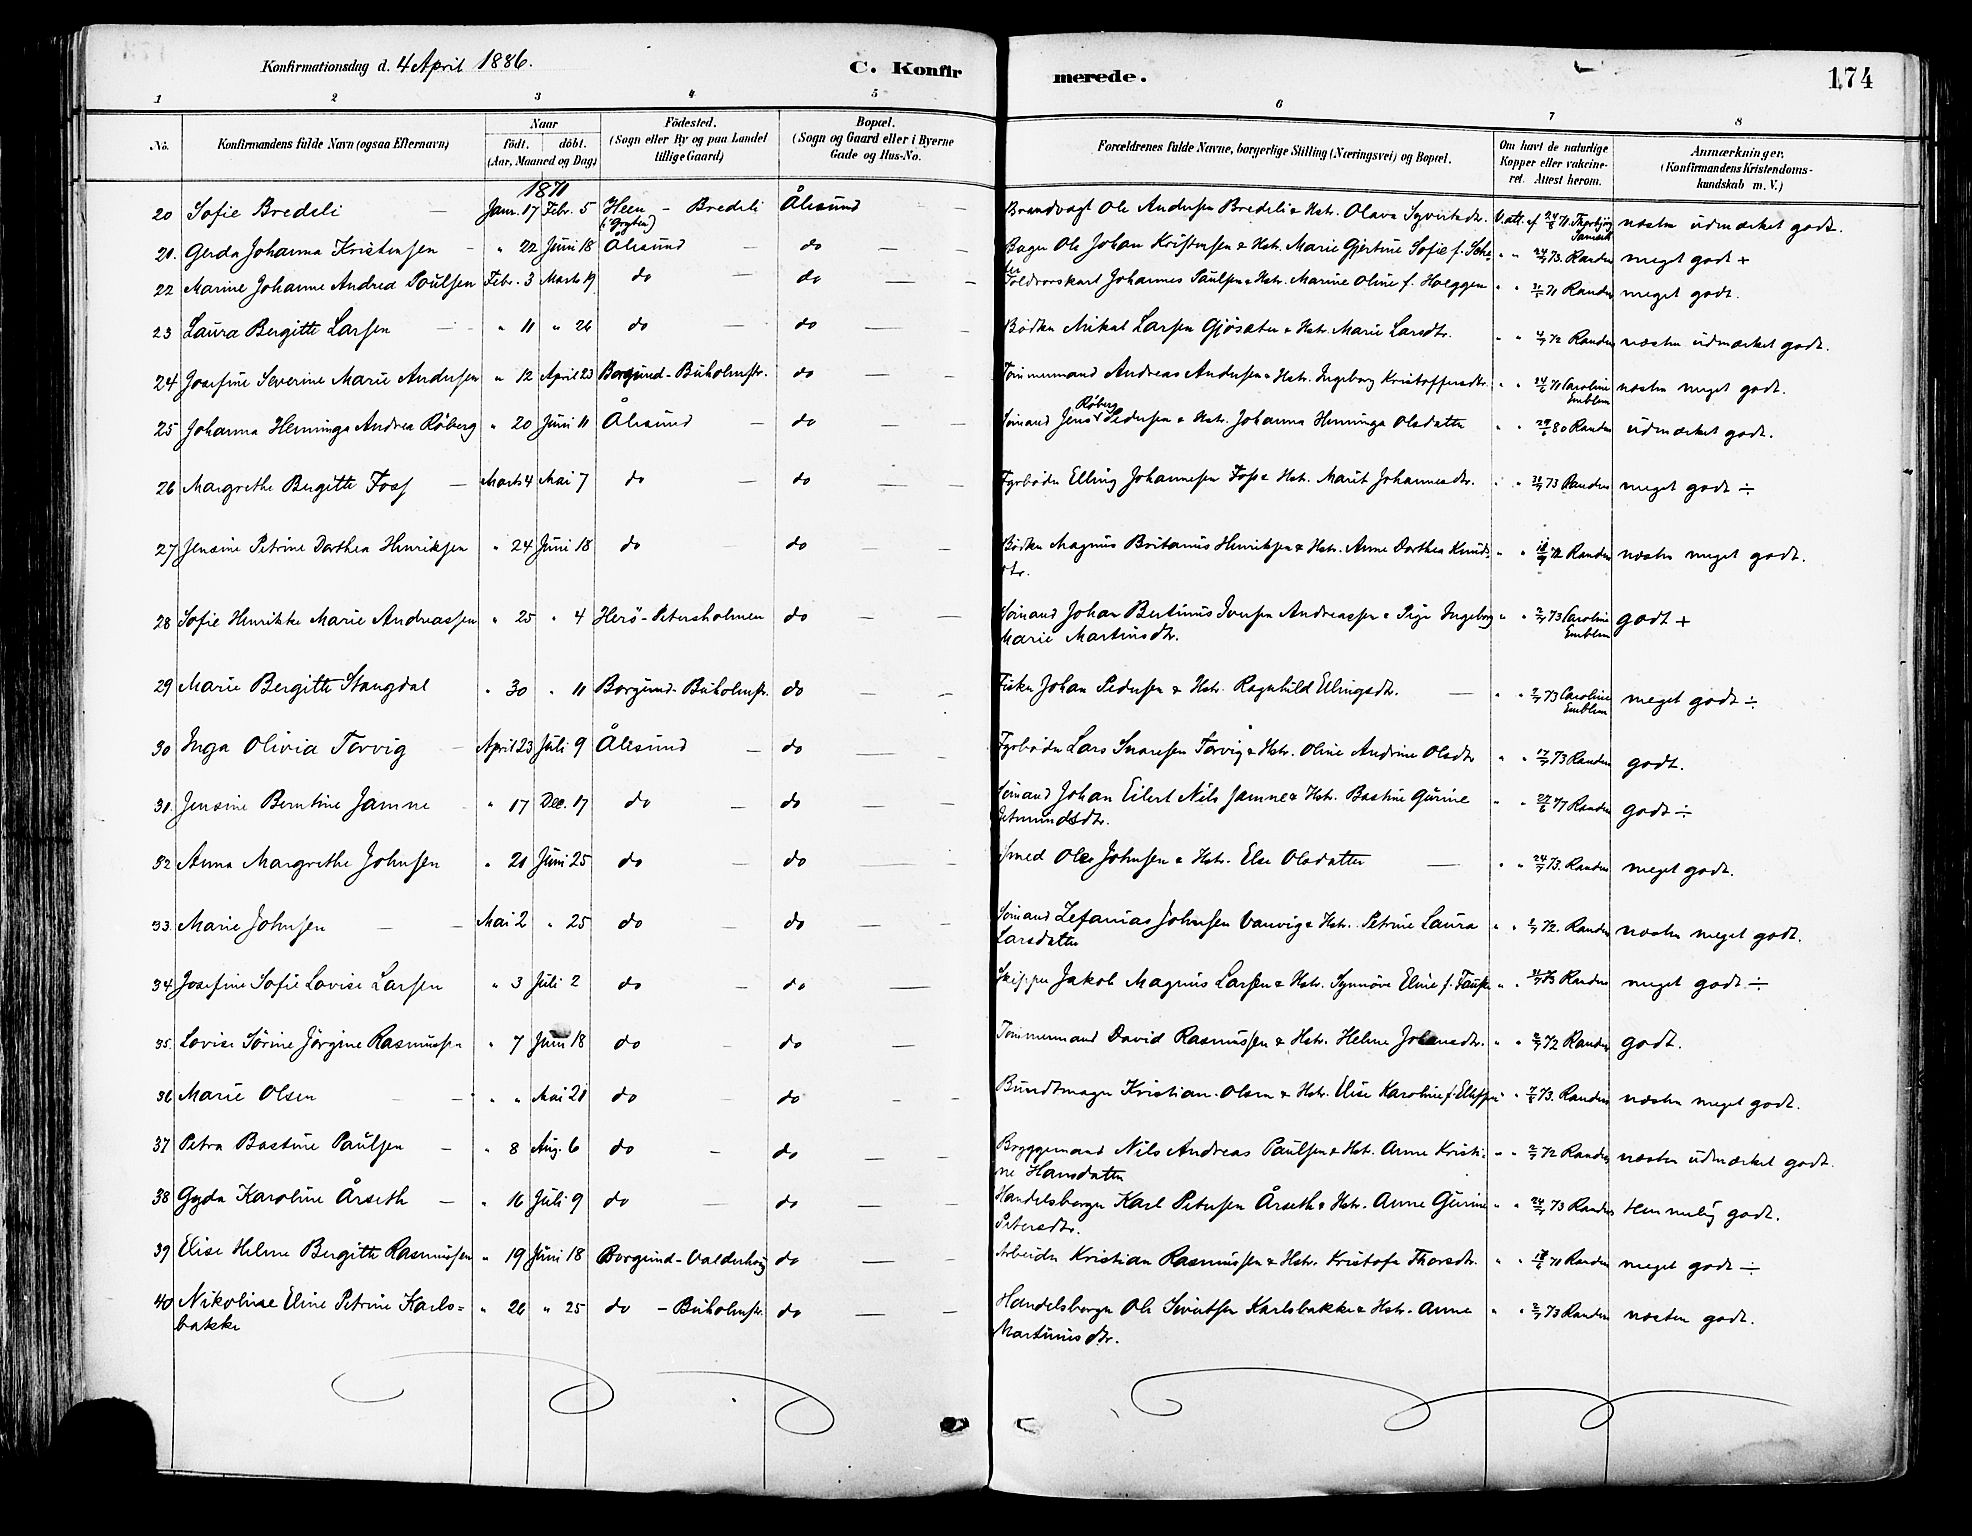 Konfirmationsdag d. 4 April 1886.
C. Konfir
merede.
174
1 2 3 4 5 6 7 8
No.
Konfirmandens fulde Navn (ogsaa Efternavn)
Naar
födt. döbt.
(Aar, Maaned og Dag)
Födested.
(Sogn eller By og paa Landet
tillige Gaard)
Bopæl.
(Sogn og Gaard eller i Byerne
Gade og Hus-No.
Forældrenes fulde Navne, borgerlige Stilling (Næringsvei) og Bopæl.
Om havt de naturlige
Kopper eller vakcine-
ret. Attest herom.
Anmærkninger.
(Konfirmandens Kristendoms-
kundskab m. V.)
1871
20 Sofie Bredeli — Janr. 17 Febr. 5 Heen - Bredeli Ålesund Brandvagt Ole Andersen Bredeli & Hstr. Olava Syvertsdtr. V. att. af 24/6 71 næsten udmærket godt.
(i Gryten)
21. Gerda Johanna Kristensen " 22 Juni 18 Ålesund do Bager Ole Johan Kristensen & Hstr. Marie Gjertine Sofie f. " " 24/7 73. Randers meget godt +
22 Marine Johanne Andrea Poulsen Febr. 3 Marts 19 do do Toldroerskarl Johannes Paulsen & Hstr. Marine Oline f. Hoeggen " " 71 Randers meget godt.
23 Laura Bergitte Larsen " 11 " 26 do do Bødker Mikal Larsen Gjøsæter & Hstr. Marie Larsdtr. " " 72 Randers næsten udmærket godt.
24 Josefine Severine Marie Andersen " 12 April 23 Borgund - Buholmstr. do Tømmermand Andreas Andersen & Hstr. Ingeborg Kristoffersdtr. " " 24/6 71 Caroline Emblem næsten meget godt.
25 Johanna Henninga Andrea Röberg " 20 Juni 11 Ålesund do Sømand Jens Röberg Pedersen & Hstr. Johanna Henninga Olsdatter " " 29/6 80 Randers udmærket godt.
26 Margrethe Bergitte Foss — Marts 4 Mai 7 do do Fyrbøder Elling Johannesen Foss & Hstr. Marit Johannesdtr. " " 73 Randers meget godt ÷
27 Jensine Petrine Dorthea Henriksen " 24 Juni 18 do do Bødker Magnus Britanus Henriksen & Hstr. Anne Dorthea Knuds-
dtr. " " 72 Randers næsten meget godt.
28 Sofie Henrikke Marie Andreassen " 25 " 4 Herö - Petersholmen do Sømand Johan Bertinus Iversen Andreassen & Pige Ingeborg
Marie Martinsdtr. " " 2/7 73 Caroline Emblem godt +
29 Marie Bergitte Stangdal " 30 " 11 Borgund - Buholmstr. do Fisker Johan Pedersen & Hstr. Ragnhild Ellingsdtr. — " " 2/7 73 Caroline Emblem meget godt ÷
30 Inga Olivia Torvig — April 23 Juli 9 Ålesund do Fyrbøder Lars Torvig & Hstr. Oline Andrine Olsdtr " " 17/7 73 Randers godt.
31. Jensine Berntine Jamne " 17 Dec. 17 do do Sømand Johan Eilert Nils Jamne & Hstr. Bastine Gurine
" " 27/6 77 Randers godt ÷
32 Anna Margrethe Johnsen " 21 Juni 25 do do Smed Ole Johnsen & Hstr. Else Olsdatter — " " 24/7 73. Randers meget godt.
33. Marie Johnsen — Mai 2 " 25 do do Sømand Zefanias Johnsen Vanvig & Hstr. Petrine Laura
Larsdatter " " 72. Randers næsten meget godt.
34 Josefine Sofie Lovise Larsen " 3 Juli 2 do do Skipper Jakob Magnus Larsen & Hstr. Synnöve Eline f. " " 73 Randers meget godt ÷
35. Lovise Sörine Jörgine Rasmussen " 7 Juni 18 do do Tømmermand David Rasmussen & Hstr. Helene Johansdtr. " " 72 Randers godt.
36 Marie Olsen — " " Mai 21 do do Bundtmager Kristian Olsen & Hstr. Elise Karoline f. " 73. Randers næsten meget godt.
37 Petra Bastine Paulsen — " 8 Aug. 6 do do Bryggemand Nils Andreas Paulsen & Hstr. Anne Kristi-
ne Hansdatter " " 2/7 72 Randers næsten udmærket godt.
38 Gyda Karoline Årseth — " 16 Juli 9 do do Handelsborger Karl Petersen Årseth & Hstr. Anne Gurine
Petersdtr. " " 24/7 73 Randers temmelig godt.
39 Elise Helene Bergitte Rasmussen " 19 Juni 18 Borgund - Valderhoug do Arbeider Kristian Rasmussen & Hstr. Kristofa Thorsdtr. " " 71 Randers meget godt ÷
40 Nikoline Eline Petrine Karls- " 26 " 25 do - Buholmstr. do Handelsborger Ole Sivertsen Karlsbakke & Hstr. Anne " " 2/7 73 Randers næsten godt.
bakke
Martinusdtr.